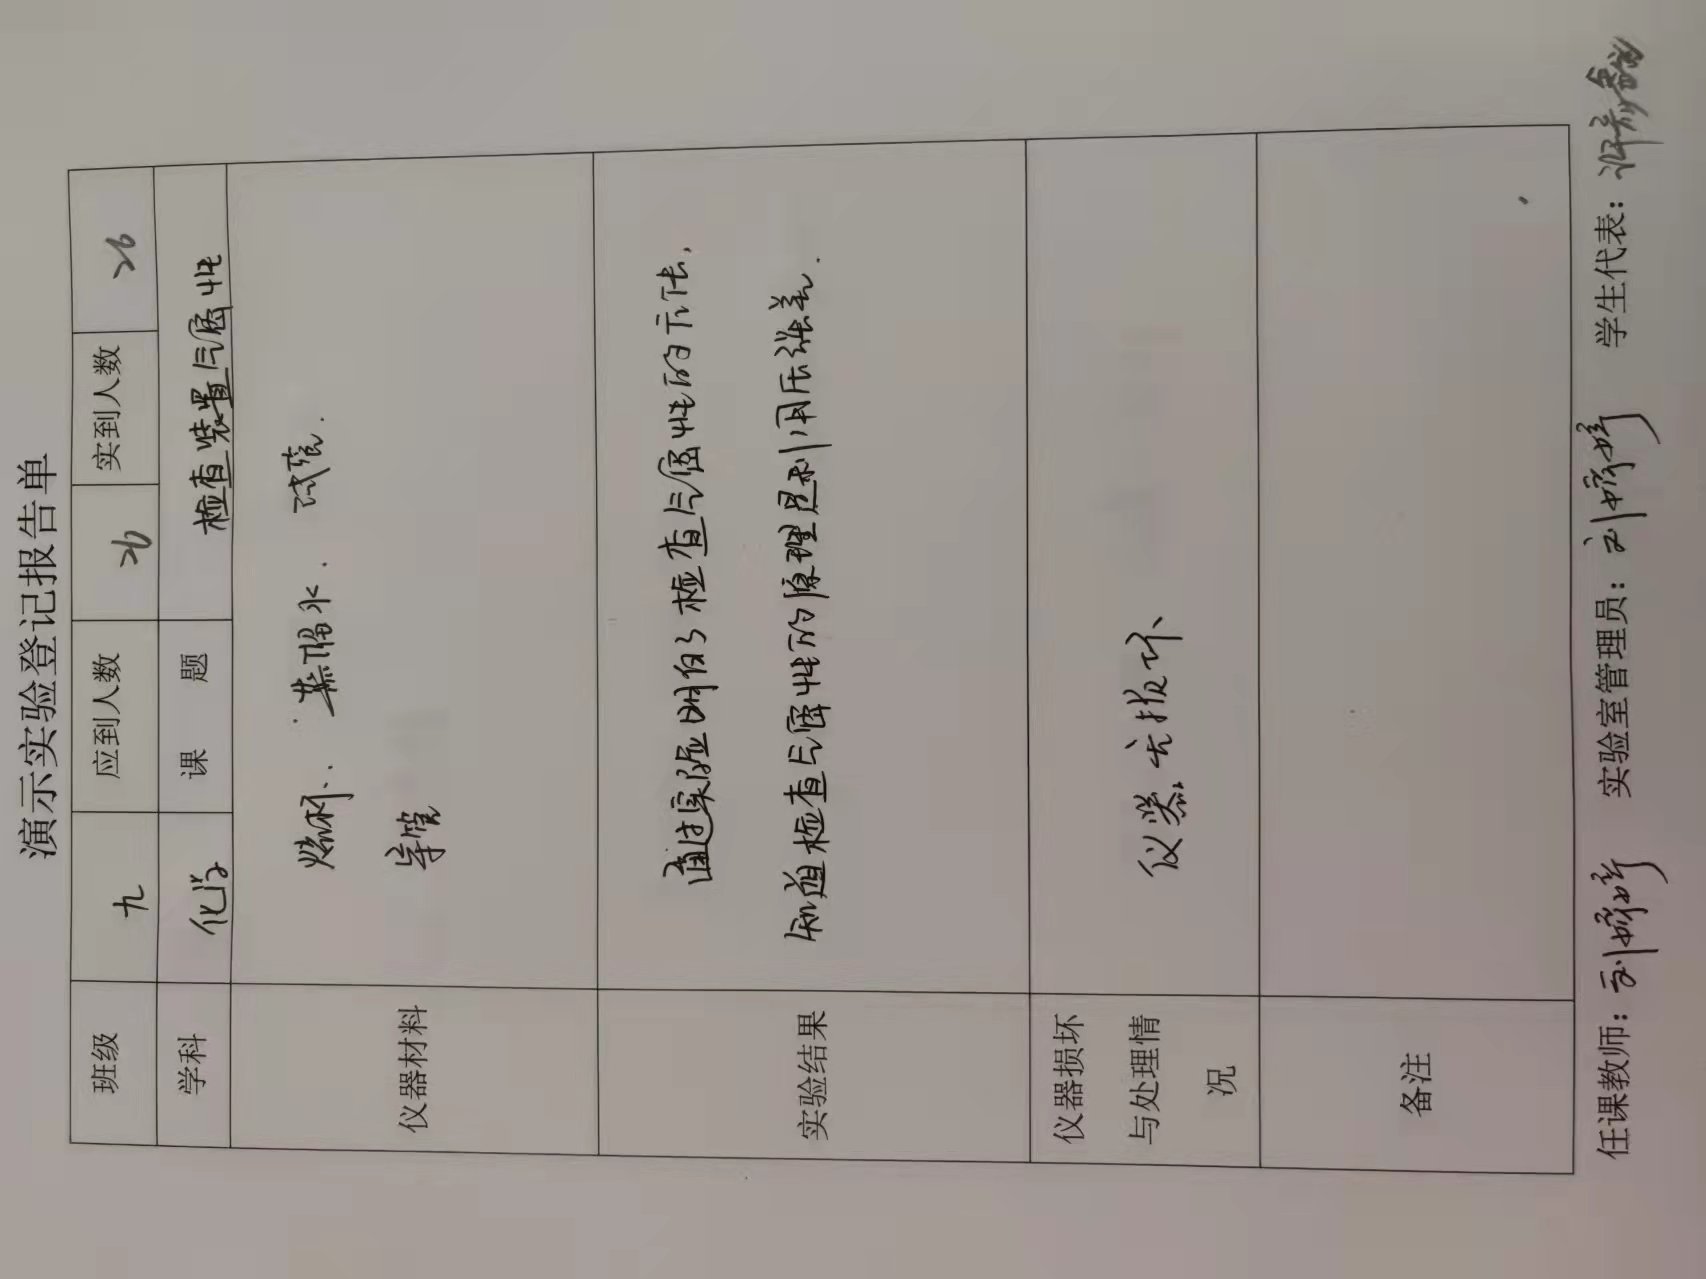 演示实验登记报告单
班级 九 应到人数 26 实到人数 26
学科 化学 课 题 检查装置气密性
仪器材料
烧杯、蒸馏水、试管、
导管
实验结果
通过实验明白了检查气密性的方法,
知道检查气密性的原理是利用压强差.
仪器损坏
与处理情
况
仪器无损坏
备注
任课教师: 刘婷婷 实验室管理员: 刘婷婷 学生代表: